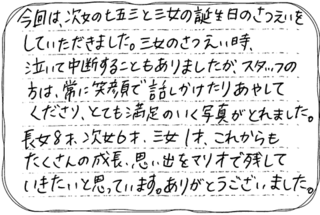 今回は、次女の七五三と三女の誕生日のさつえいを
していただきました。三女のさつえい時、
泣いて中断することもありましたが、スタッフの
方は、常に笑顔で話しかけたりあやして
くださり、とても満足のいく写真がとれました。
長女8才、次女6才、三女1才、これからも
たくさんの成長、思い出をマリオで残して
いきたいと思っています。ありがとうございました。